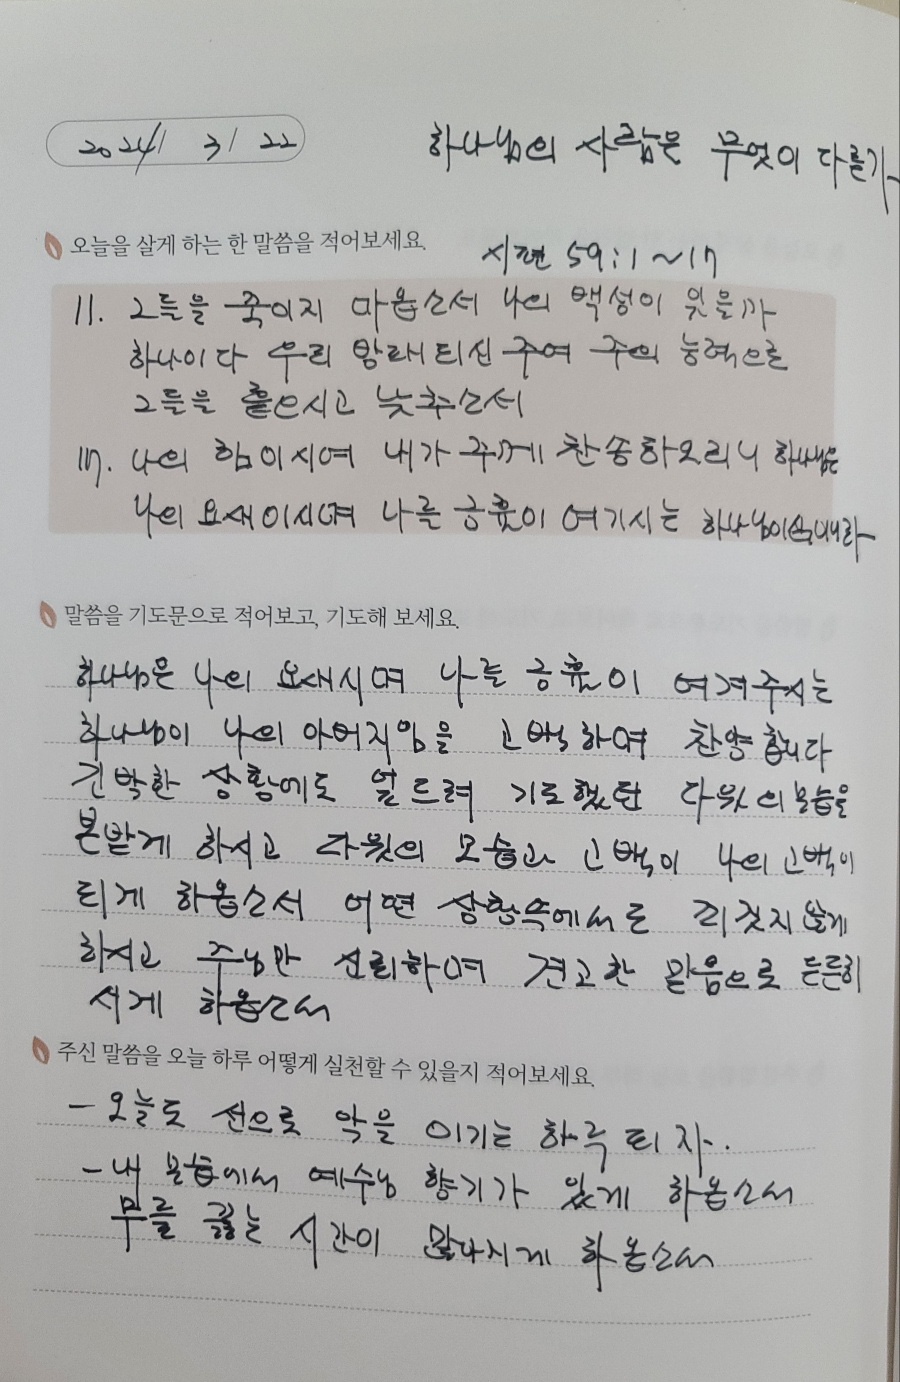 2024/ 3/ 22
하나님의 사람은 무엇이 다를가
오늘을 살게 하는 한 말씀을 적어보세요.
시편 59:1~17
11. 그들을 죽이지 마옵소서 나의 백성이 잊을까
하나이다 우리 방패되신 주여 주의 능력으로
그들을 흩으시고 낮추소서
17. 나의 힘이시여 내가 주께 찬송하오리니 하나님은
나의 요새이시며 나를 긍휼이 여기시는 하나님이심니라
말씀을 기도문으로 적어보고, 기도해 보세요.
하나님은 나의 요새시며 나를 긍휼이 여겨주시는
하나님이 나의 아버지임을 고백하며 찬양합니다
긴박한 상황에도 엎드려 기도했던 다윗의 모습을
본받게 하시고 다윗의 모습과 고백이 나의 고백이
되게 하옵소서 어떤 상황속에서도 잊지않게
하시고 주님만 신뢰하며 견고한 맘음으로 든든히
서게 하옵소서
주신 말씀을 오늘 하루 어떻게 실천할 수 있을지 적어보세요.
- 오늘도 선으로 악을 이기는 하루 되자.
- 내 모습에서 예수님 향기가 있게 하옵소서
무릎 꿇는 시간이 많아지게 하옵소서